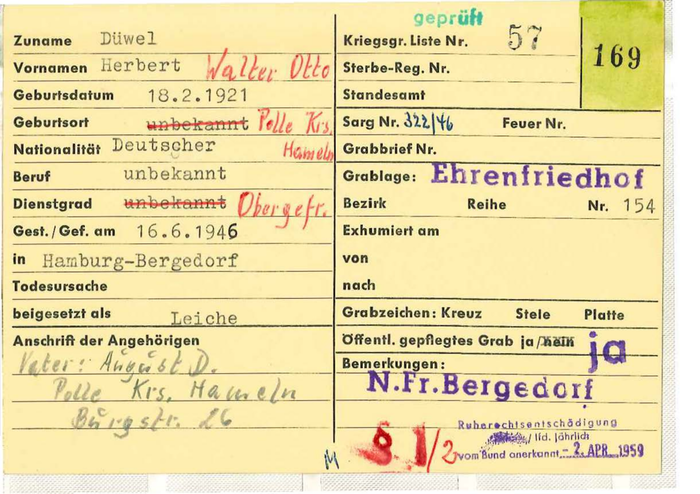 geprüft
Zuname Düwel
Vornamen Herbert Walter Otto
Geburtsdatum 18.2.1921
Geburtsort unbekannt Polle Krs.
Nationalität Deutscher Hameln
Beruf unbekannt
Dienstgrad unbekannt Obergefr.
Gest./Gef. am 16.6.1946
in Hamburg-Bergedorf
Todesursache
beigesetzt als Leiche
Anschrift der Angehörigen
Vater: August D.
Polle Krs. Hameln
Burgstr. 26
Kriegsgr. Liste Nr. 57
169
Sterbe-Reg. Nr.
Standesamt
Sarg Nr. 322/46 Feuer Nr.
Grabbrief Nr.
Grablage: Ehrenfriedhof
Bezirk Reihe Nr. 154
Exhumiert am
von
nach
Grabzeichen: Kreuz Stele Platte
Öffentl. gepflegtes Grab ja/nein ja
Bemerkungen:
N.Fr.Bergedorf
Ruherechtsentschädigung
/ lfd. jährlich
vom Bund anerkannt - 2. APR. 1959
M § 1/2